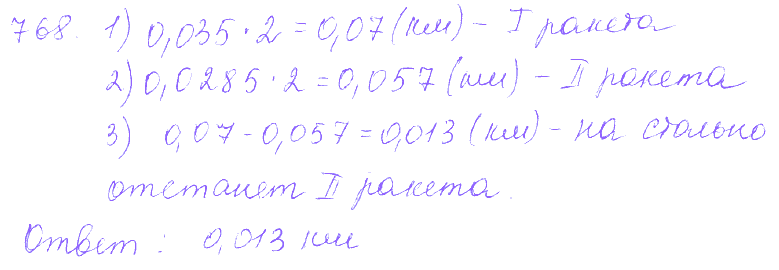 768. 1) 0,035 · 2 = 0,07 (км) – I ракета
2) 0,0285 · 2 = 0,057 (км) – II ракета
3) 0,07 - 0,057 = 0,013 (км) – на столько
отстанет II ракета.
Ответ : 0,013 км